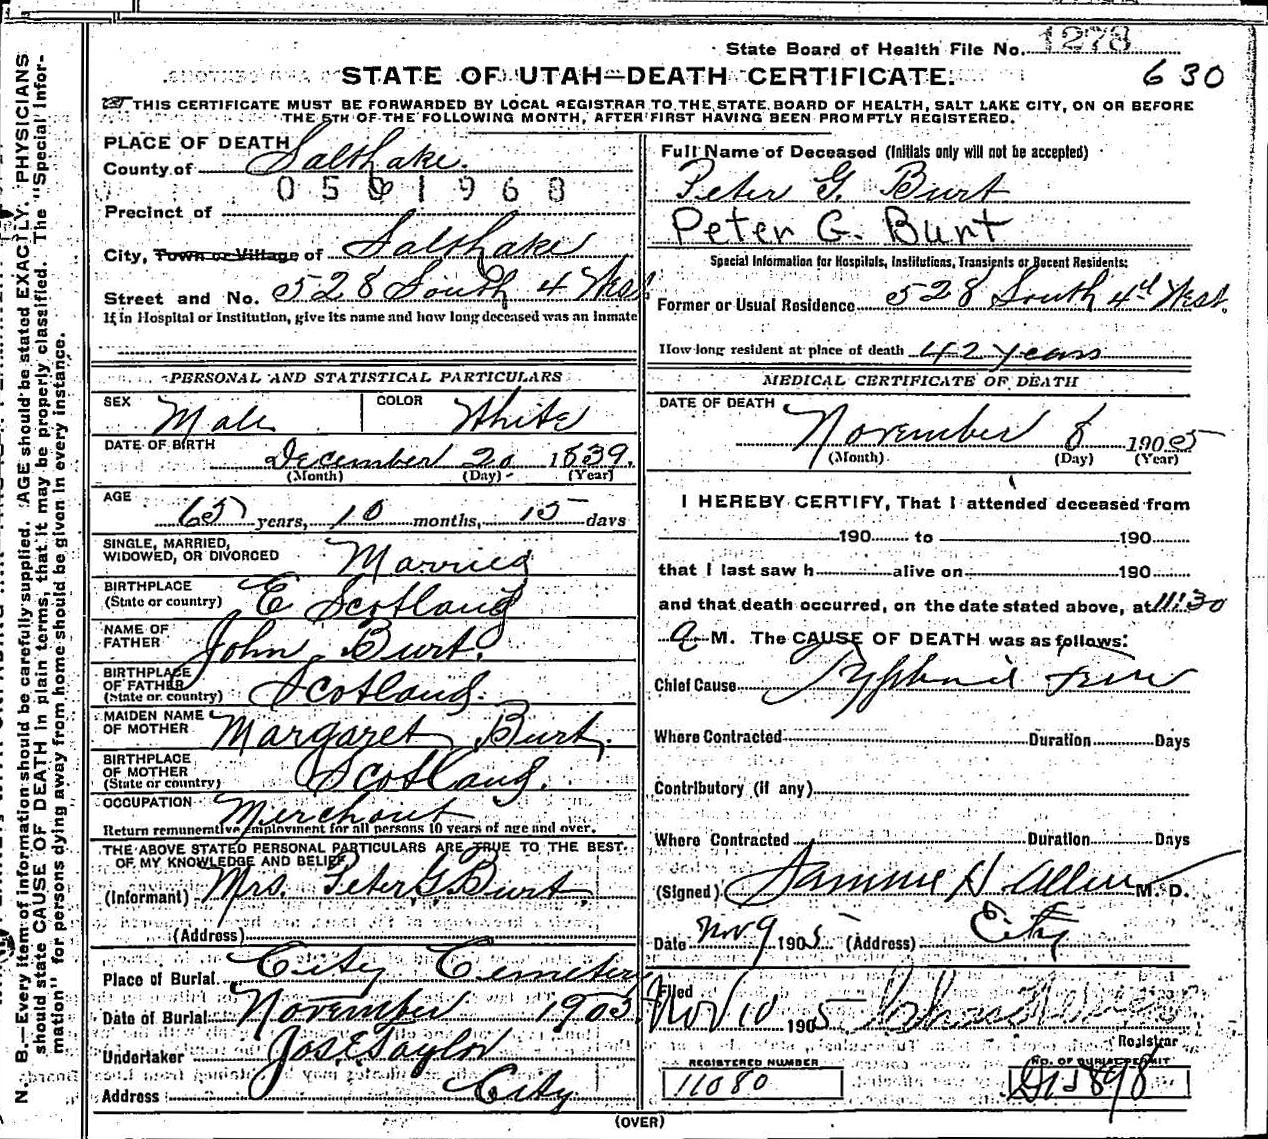 State Board of Health File No. 1278
630
STATE OF UTAH—DEATH CERTIFICATE.
THIS CERTIFICATE MUST BE FORWARDED BY LOCAL REGISTRAR TO THE STATE BOARD OF HEALTH, SALT LAKE CITY, ON OR BEFORE
THE 5TH OF THE FOLLOWING MONTH, AFTER FIRST HAVING BEEN PROMPTLY REGISTERED.
PLACE OF DEATH
County of Salt Lake.
0501968
Precinct of
City, Town or Village of Salt Lake
Street and No. 528 South 4 West
If in Hospital or Institution, give its name and how long deceased was an inmate
Full Name of Deceased (Initials only will not be accepted)
Peter G. Burt
Peter G. Burt
Special Information for Hospitals, Institutions, Transients or Recent Residents:
Former or Usual Residence 528 South 4th West.
How long resident at place of death 42 years
PERSONAL AND STATISTICAL PARTICULARS
SEX Male
COLOR White
DATE OF BIRTH December 20 1839.
(Month) (Day) (Year)
AGE
65 years, 10 months, 15 days
SINGLE, MARRIED,
WIDOWED, OR DIVORCED Married
BIRTHPLACE
(State or country) E Scotland
NAME OF
FATHER John Burt.
BIRTHPLACE
OF FATHER
(State or country) Scotland.
MAIDEN NAME
OF MOTHER Margaret Burt.
BIRTHPLACE
OF MOTHER
(State or country) Scotland.
OCCUPATION Merchant
Return remunerative employment for all persons 10 years of age and over.
THE ABOVE STATED PERSONAL PARTICULARS ARE TRUE TO THE BEST
OF MY KNOWLEDGE AND BELIEF
(Informant) Mrs. Peter G. Burt.
(Address)
Place of Burial City Cemetery
Date of Burial November 1905.
Undertaker Jos E Taylor
Address City
MEDICAL CERTIFICATE OF DEATH
DATE OF DEATH
November 8 1905
(Month) (Day) (Year)
I HEREBY CERTIFY, That I attended deceased from
190 to 190
that I last saw h alive on 190
and that death occurred, on the date stated above, at 11:30
a M. The CAUSE OF DEATH was as follows:
Chief Cause Typhoid Fever
Where Contracted Duration Days
Contributory (if any)
Where Contracted Duration Days
(Signed) H Allen M. D.
Date Nov 9 1905 (Address) City
Filed
Nov 10 1905
Registrar
REGISTERED NUMBER
11080
NO. OF BURIAL PERMIT
(OVER)
N. B.—Every item of information should be carefully supplied. AGE should be stated EXACTLY. PHYSICIANS
should state CAUSE OF DEATH in plain terms, that it may be properly classified. The "Special Infor-
mation" for persons dying away from home should be given in every instance.